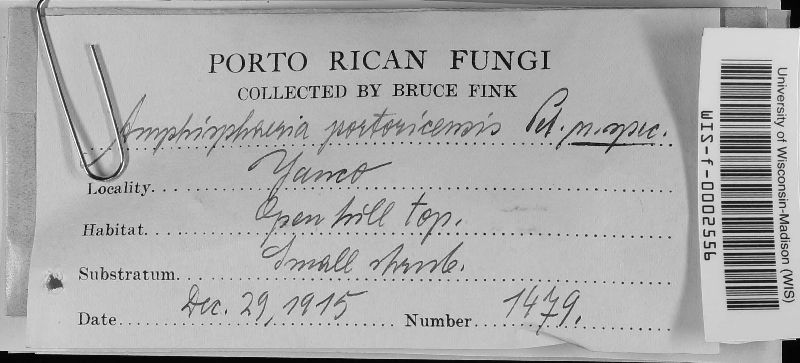 PORTO RICAN FUNGI
COLLECTED BY BRUCE FINK
Amphisphaeria portoricensis Pet. n. spec.
Locality. Yauco
Habitat. Open hill top.
Substratum. Small shrub.
Date Dec. 29, 1915 Number 1479.
University of Wisconsin-Madison (WIS)
WIS-f-0002556